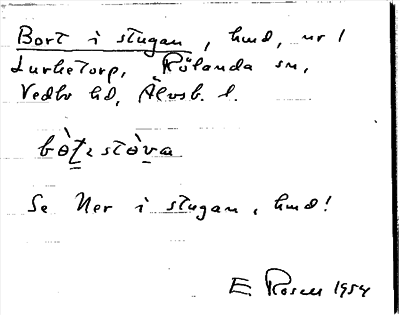 Bort i stugan, hmd, nr 1
Lurketorp, Rölanda sn,
Vedbo hd, Älvsb. l.
Se Ner i stugan, hmd!
E Rosell 1954